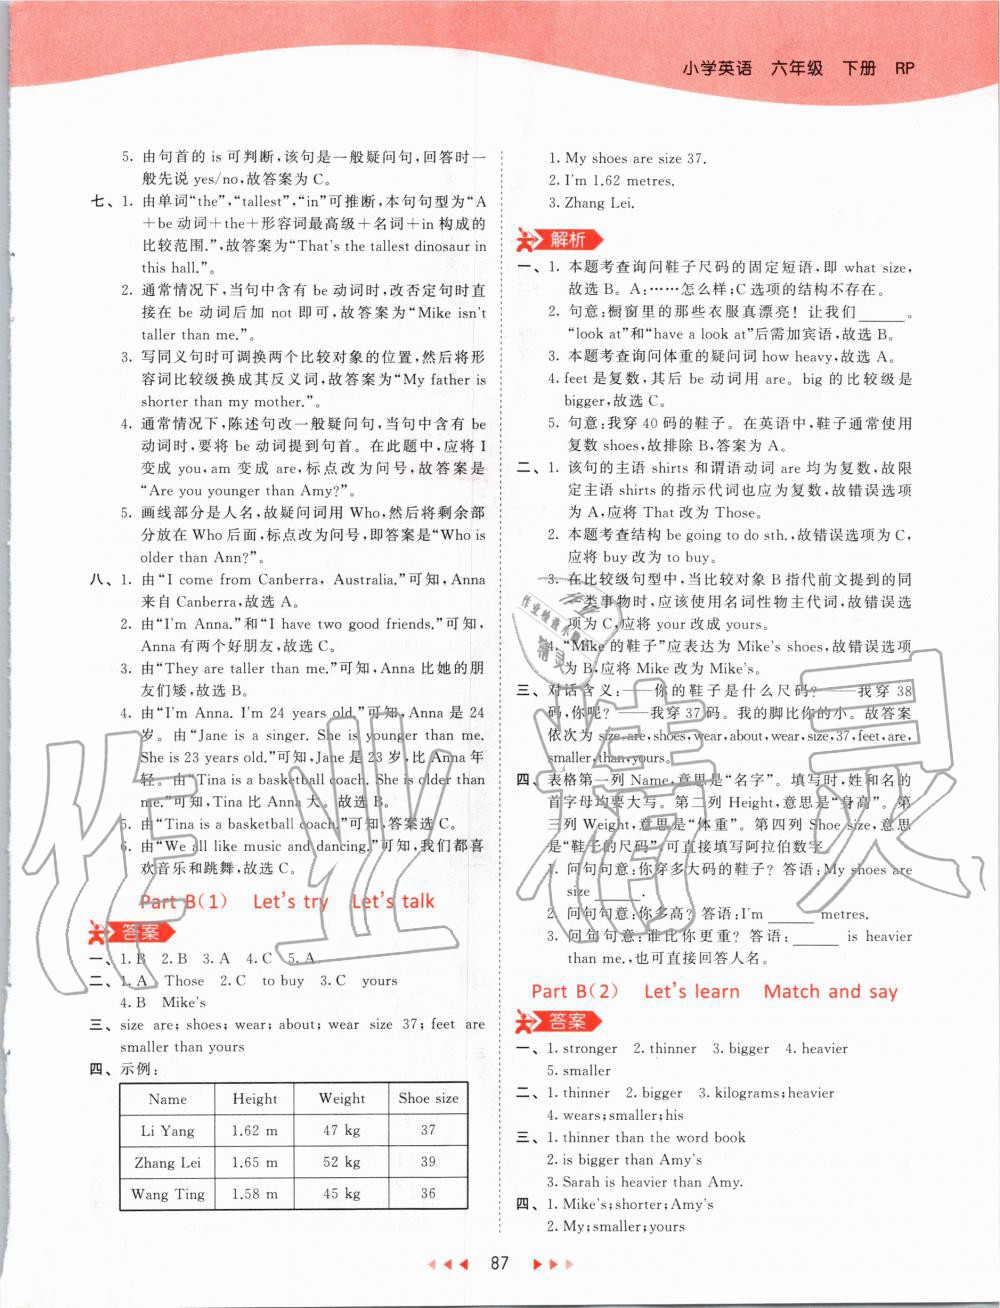 小学英语 六年级 下册 RP
5. 由句首的 is 可判断,该句是一般疑问句,回答时一
般先说 yes/no,故答案为 C。
七、1. 由单词“the”,“tallest”,“in”可推断,本句句型为“A
＋be 动词＋the＋形容词最高级＋名词＋in 构成的
比较范围.”,故答案为“That's the tallest dinosaur in
this hall.”。
2. 通常情况下,当句中含有 be 动词时,改否定句时直
接在 be 动词后加 not 即可,故答案为“Mike isn't
taller than me.”。
3. 写同义句时可调换两个比较对象的位置,然后将形
容词比较级换成其反义词,故答案为“My father is
shorter than my mother.”。
4. 通常情况下,陈述句改一般疑问句,当句中含有 be
动词时,要将 be 动词提到句首。在此题中,应将 I
变成 you,am 变成 are,标点改为问号,故答案是
“Are you younger than Amy?”。
5. 画线部分是人名,故疑问词用 Who,然后将剩余部
分放在 Who 后面,标点改为问号,即答案是“Who is
older than Ann?”。
八、1. 由“I come from Canberra, Australia.”可知,Anna
来自 Canberra,故选 A。
2. 由“I'm Anna.”和“I have two good friends.”可知,
Anna 有两个好朋友,故选 C。
3. 由“They are taller than me.”可知,Anna 比她的朋
友们矮,故选 B。
4. 由“I'm Anna. I'm 24 years old.”可知,Anna 是 24
岁。由“Jane is a singer. She is younger than me.
She is 23 years old.”可知,Jane 是 23 岁,比 Anna 年
轻。由“Tina is a basketball coach. She is older than
me.”可知,Tina 比 Anna 大。故选 B。
5. 由“Tina is a basketball coach.”可知,答案选 C。
6. 由“We all like music and dancing.”可知,我们都喜
欢音乐和跳舞,故选 C。
Part B(1) Let's try Let's talk
答案
一、1. B 2. B 3. A 4. C 5. A
二、1. A Those 2. C to buy 3. C yours
4. B Mike's
三、size are; shoes; wear; about; wear size 37; feet are
smaller than yours
四、示例:
Name Height Weight Shoe size
Li Yang 1.62 m 47 kg 37
Zhang Lei 1.65 m 52 kg 39
Wang Ting 1.58 m 45 kg 36
1. My shoes are size 37.
2. I'm 1.62 metres.
3. Zhang Lei.
解析
一、1. 本题考查询问鞋子尺码的固定短语,即 what size,
故选 B。A:……怎么样;C 选项的结构不存在。
2. 句意:橱窗里的那些衣服真漂亮！让我们______。
“look at”和“have a look at”后需加宾语,故选 B。
3. 本题考查询问体重的疑问词 how heavy,故选 A。
4. feet 是复数,其后 be 动词用 are。big 的比较级是
bigger,故选 C。
5. 句意:我穿 40 码的鞋子。在英语中,鞋子通常使用
复数 shoes,故排除 B,答案为 A。
二、1. 该句的主语 shirts 和谓语动词 are 均为复数,故限
定主语 shirts 的指示代词也应为复数,故错误选项
为 A,应将 That 改为 Those。
2. 本题考查结构 be going to do sth.,故错误选项为 C,
应将 buy 改为 to buy。
3. 在比较级句型中,当比较对象 B 指代前文提到的同
类事物时,应该使用名词性物主代词,故错误选
项为 C,应将 your 改成 yours。
4. “Mike 的鞋子”应表达为 Mike's shoes,故错误选项
为 B,应将 Mike 改为 Mike's。
三、对话含义:——你的鞋子是什么尺码？——我穿 38
码,你呢？——我穿 37 码。我的脚比你的小。故答案
依次为 size,are,shoes,wear,about,wear,size,37,feet,are,
smaller,than,yours。
四、表格第一列 Name,意思是“名字”。填写时,姓和名的
首字母均要大写。第二列 Height,意思是“身高”。第
三列 Weight,意思是“体重”。第四列 Shoe size,意思
是“鞋子的尺码”,可直接填写阿拉伯数字。
1. 问句句意:你穿多大码的鞋子？答语:My shoes are
size ______
2. 问句句意:你多高？答语:I'm ______ metres.
3. 问句句意:谁比你更重？答语:______ is heavier
than me.,也可直接回答人名。
Part B(2) Let's learn Match and say
答案
一、1. stronger 2. thinner 3. bigger 4. heavier
5. smaller
二、1. thinner 2. bigger 3. kilograms;heavier
4. wears;smaller;his
三、1. thinner than the word book
2. is bigger than Amy's
3. Sarah is heavier than Amy.
四、1. Mike's;shorter;Amy's
2. My;smaller;yours
87
作业精灵